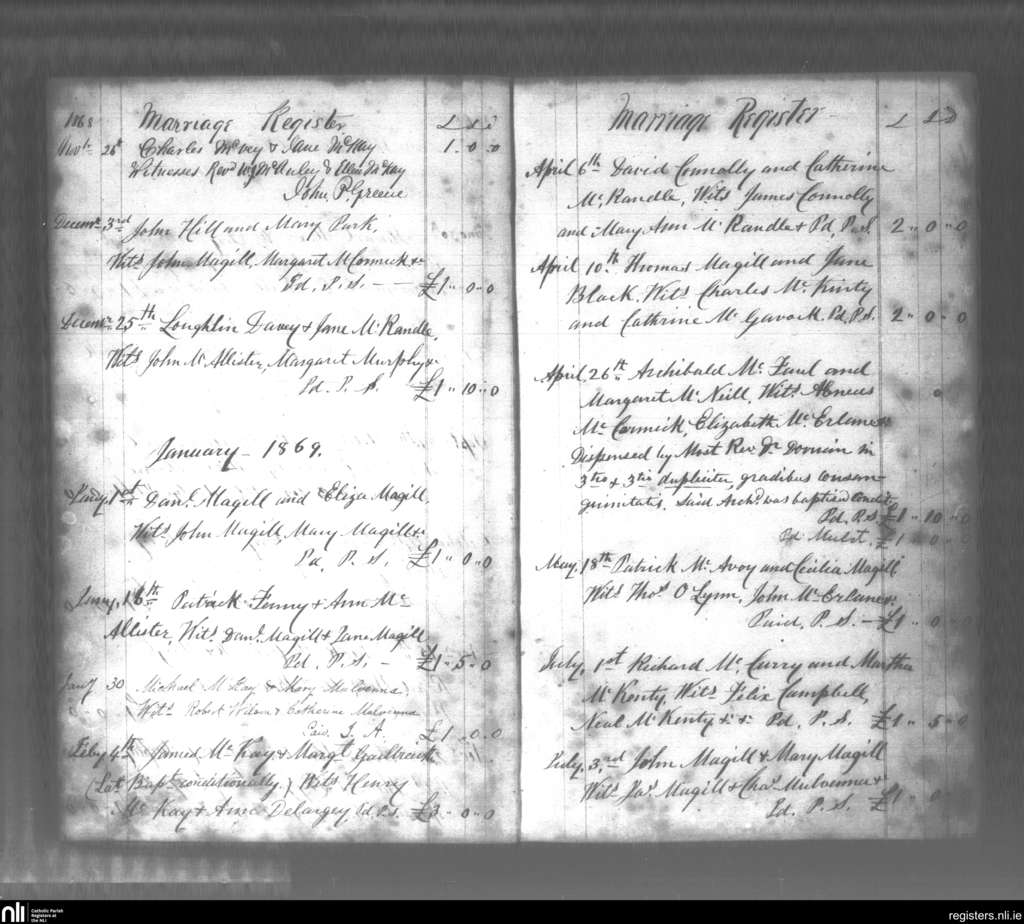 1868 Marriage Register £ s d
Novr 26th Charles McVey & Jane McKay 1.0.0
Witnesses Revd Wm McAuley & Ellen McKay
John P. Greene
Decemr 3rd John Hill and Mary Park,
Wits John Magill, Margaret McCormick &c
Pd. P. S. — — £1 " 0 " 0
Decemr 25th Loughlin Davey & Jane McRandle,
Wits John McAllister, Margaret Murphy &c
Pd. P. S. £1 " 10 " 0
January — 1869.
Janry. 1st Danl. Magill and Eliza Magill,
Wits John Magill, Mary Magill &c
Pd. P. S. £1 " 0 " 0
Janry. 16th Patrick Fenny & Ann Mc
Allister, Wits Danl. Magill & Jane Magill
Pd. P. S. — £1 " 5 " 0
Jany 30 Michael McKay & Mary Mulvenna
Wits Robert Wilson & Catherine Mulvenna
Paid £1.0.0
Feby 4th James McKay & Margt Galbreath
(Late Bapt conditionally) Wits Henry
McKay & Anne Delargey Pd P.S. £3 " 0 " 0
Marriage Register £ s D
April 6th David Connolly and Catherine
McRandle, Wits James Connolly
and Mary Ann McRandle & Pd. P. S. 2 " 0 " 0
April 10th Thomas Magill and Jane
Black. Wits Charles McKinty
and Cathrine McGavock. Pd. P. S. 2 " 0 " 0
April 26th Archibald McFaul and
Margaret McNeill, Wits Æneas
McCormick, Elizabeth McErlane &c
Dispensed by Most Rev Dr Dorrian in
3tio & 3tio dupliciter, gradibus consan-
guinitatis. Said Archd. was baptised condity
Pd. P. S. £1 " 10 " 0
Pd £1 " 0 " 0
May, 18th Patrick McAvoy and Cecilia Magill
Wits Thos O'Lynn, John McErlane &c
Paid, P. S. — £1 " 0 " 0
July, 1st Richard McCurry and Martha
McKenty, Wits Felix Campbell,
Neal McKenty &c &c Pd. P. S. £1 " 5 " 0
July, 3rd John Magill & Mary Magill
Wits Jas Magill & Chas Mulvenna &c
Pd. P. S. £1 " 0
nli Catholic Parish
Registers at
the NLI
registers.nli.ie